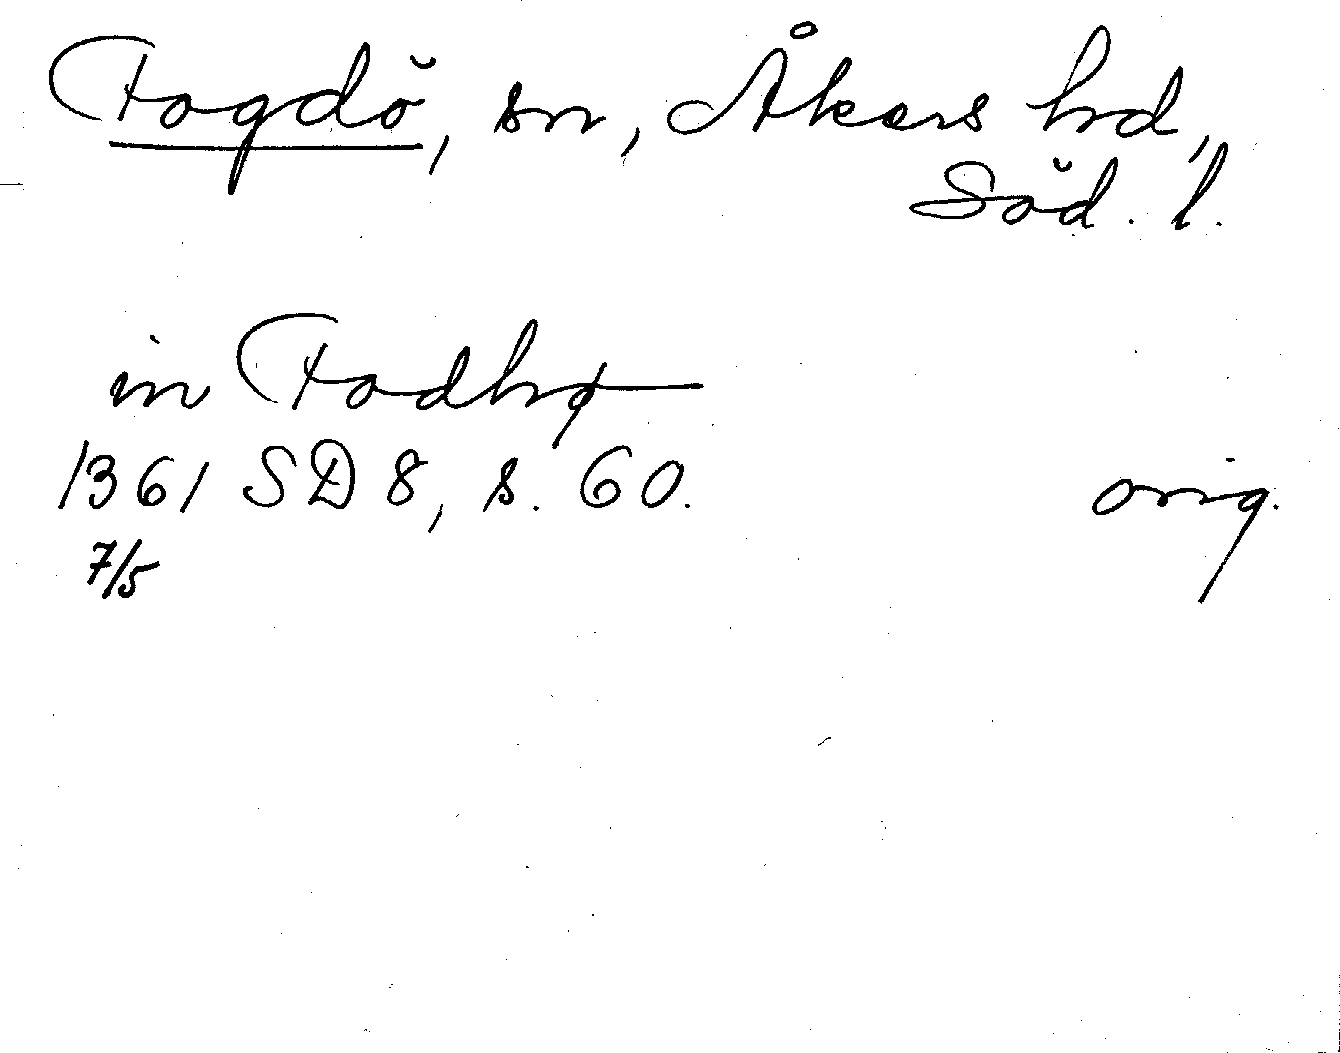 Fogdö, sn, Åkers hd,
Söd. l.
in Fodhø
1361 SD 8, s. 60. orig.
7/5